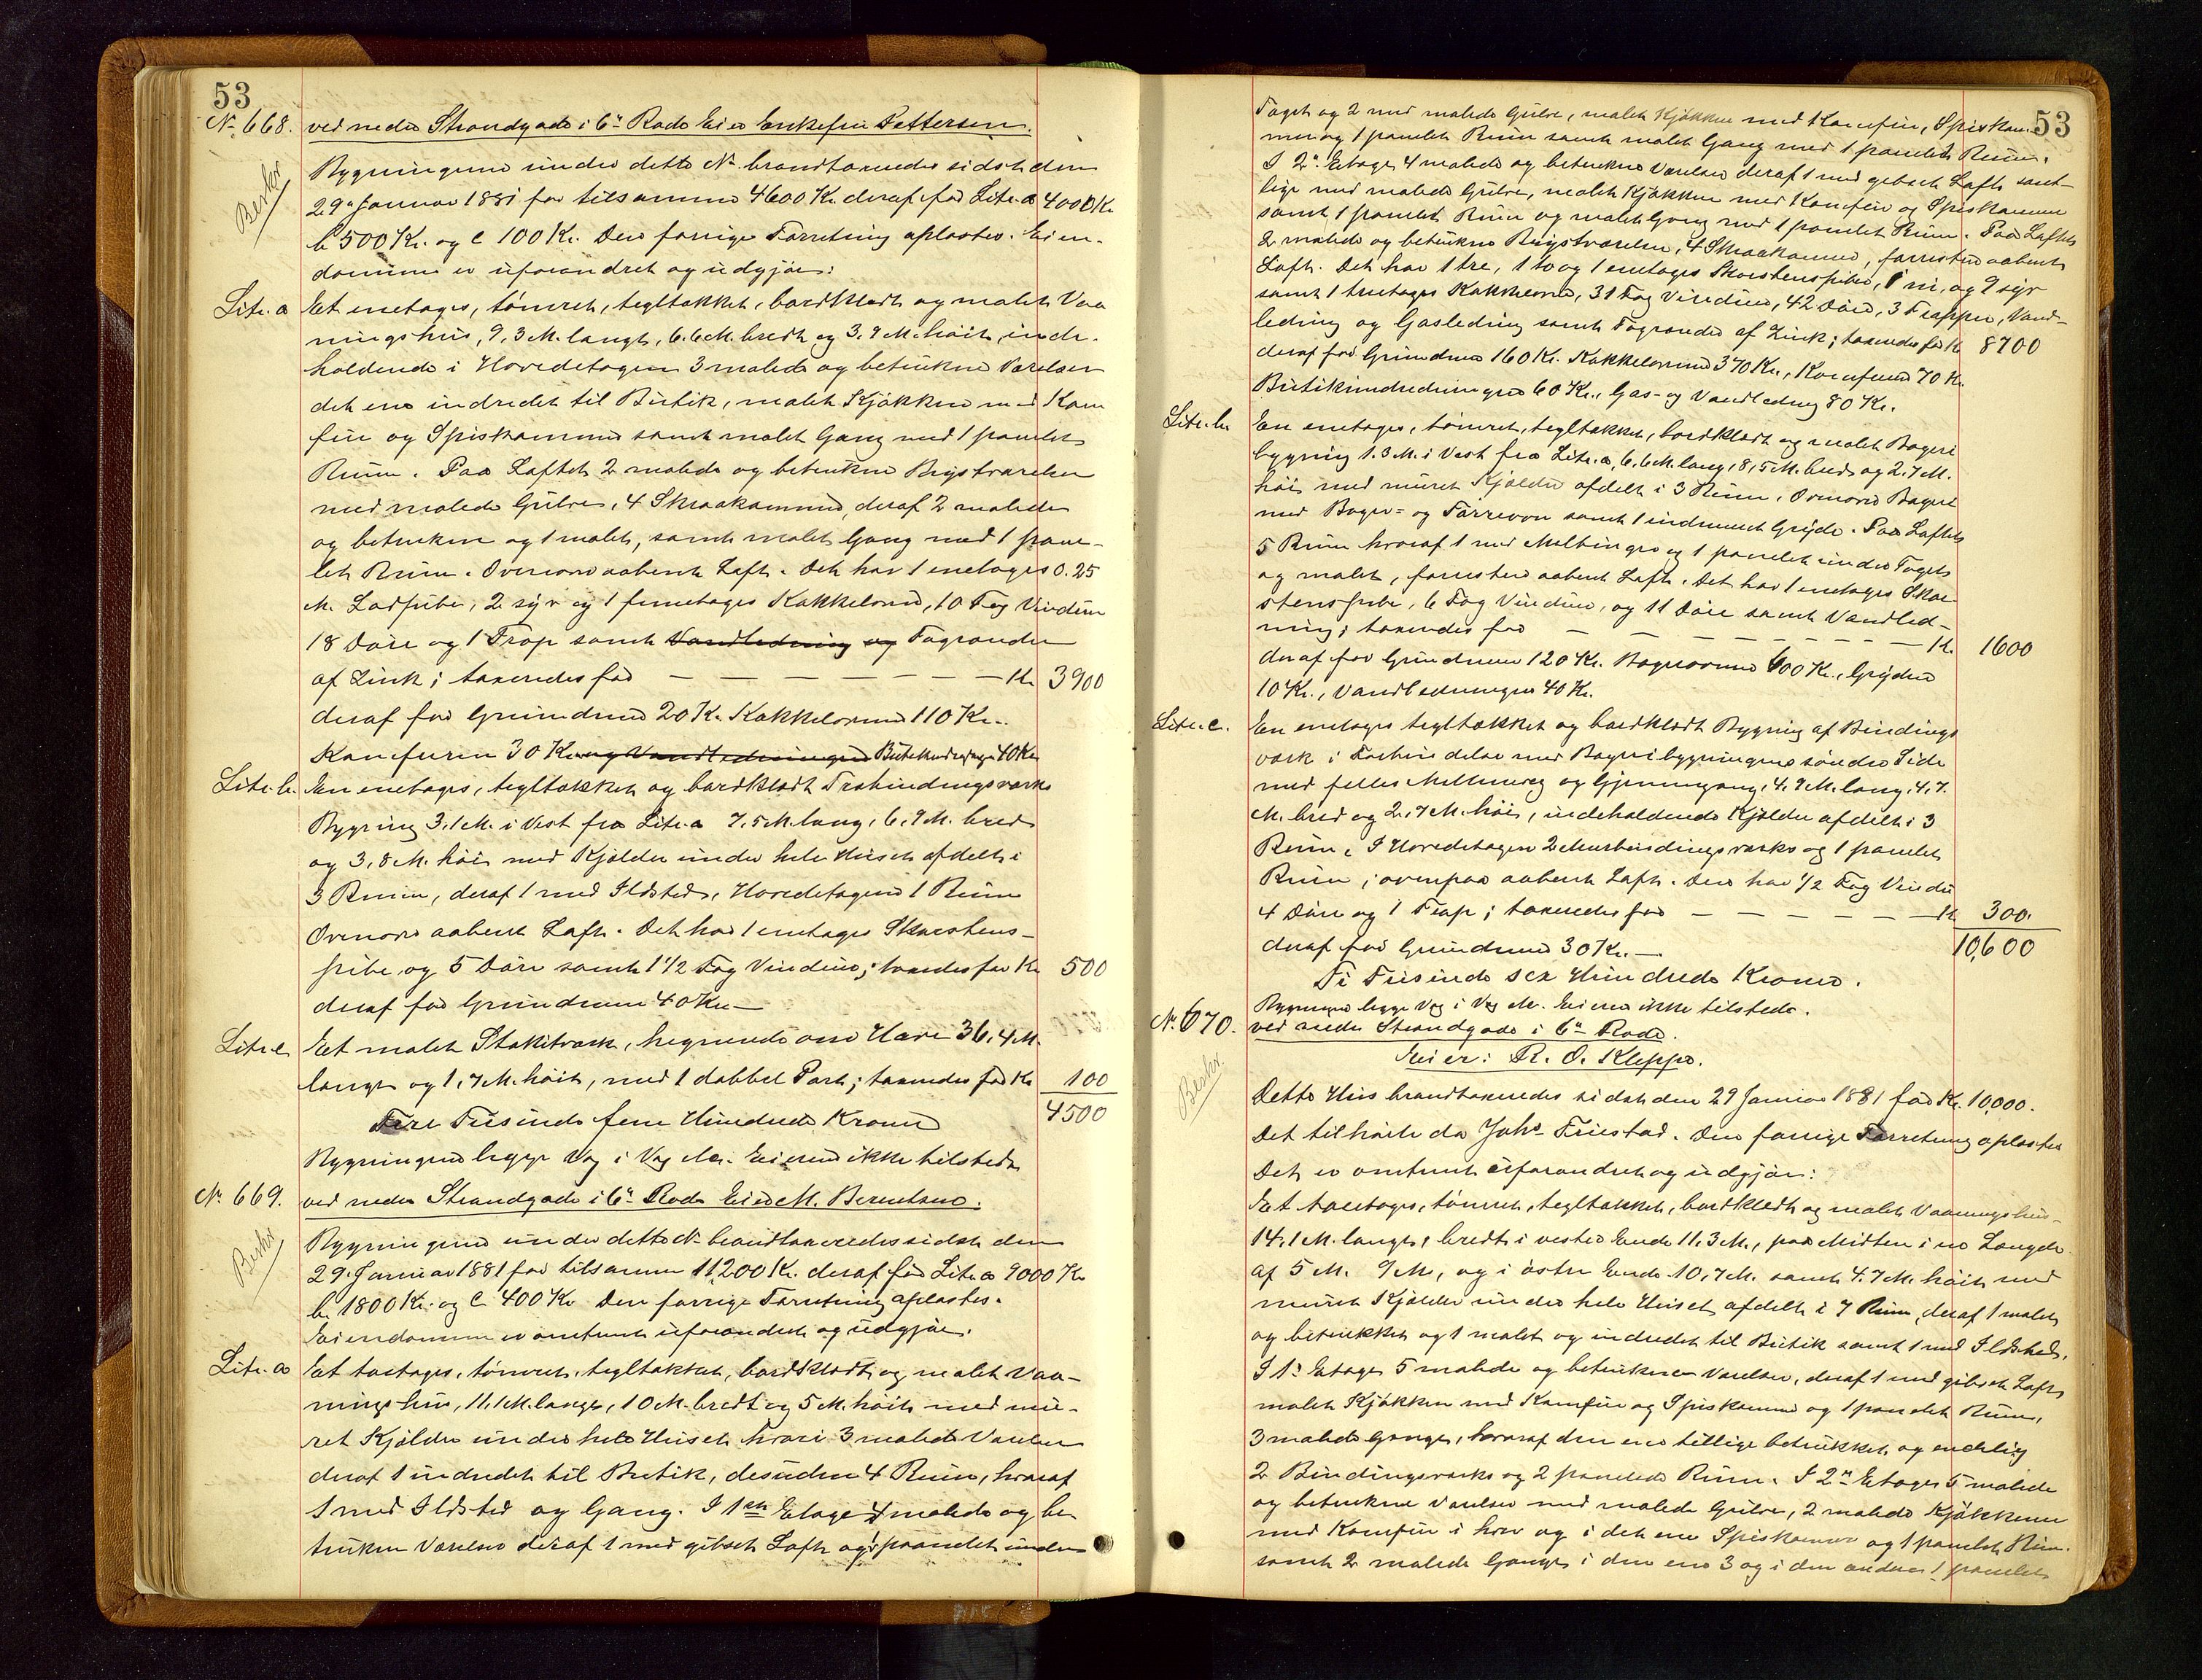 53
No. 668. ved nedre Strandgade i 6te Rode Eier Enkefru Pettersen.
Beskr
Bygningerne under dette No. brandtaxeredes sidst den
29de Januar 1881 for tilsammen 4600 Kr. deraf for Litr. a 4000 Kr
b 500 Kr. og c 100 Kr. Den forrige Forretning oplæstes. Eien-
dommen er uforandret og udgjør:
Litr. a Et enetages, tømret, tegltækket, bordklædt og malet Vaa
ningshus, 9,3 M. langt, 6.6 M. bredt og 3,9 M. høit, inde-
holdende i Hovedetagen 3 malede og betrukne Værelser
det ene indredet til Butik, malet Kjøkken med Kom
fur og Spiskammer samt malet Gang med 1 panelet
Rum. Paa Loftet 2 malede og betrukne Kvistværelser
med malede Gulve, 4 Skraakammer, deraf 2 malede
og betrukne og 1 malet, samt malet Gang med 1 pane-
let Rum. Ovenover aabent Loft. Det har 1 enetages 0.25
M. Lodpibe, 2 syv og 1 femetages Kakkelovn, 10 Fag Vinduer
18 Døre og 1 Trap samt Vandledning og Tagrender
af Zink; taxeredes for — — — — — — — Kr. 3900
deraf for Grunden 20 Kr. Kakkelovnene 110 Kr.
Komfuren 30 Kr. og Vandledningen Butikindredningen 40 Kr
Litr. b. En enetages, tegltækket og bordklædt Træbindingsværks
Bygning 3,1 M. i Vest fra Litr. a 7,5 M. lang, 6,9 M. bred
og 3,8 M. høi med Kjælder under hele Huset afdelt i
3 Rum, deraf 1 med Ildsted, Hovedetagen 1 Rum
Ovenover aabent Loft. Det har 1 enetages Skorstens-
pibe og 5 Døre samt 1 1/2 Fag Vinduer; taxeredes for Kr. 500
deraf for Grunden 40 Kr. —
Litr. c Et malet Stakitværk, hegnende om Have 36,4 M.
langt og 1,7 M. høit, med 1 dobbel Port; taxeredes for Kr. 100
4500
Fire Tusinde fem Hundrede Kroner
Bygningerne ligge Væg i Væg M. Eieren ikke tilstede
No. 669. ved nedre Strandgade i 6te Rode Eier M. Berentsen.
Beskr
Bygningerne under dette No. brandtaxeredes sidst den
29. Januar 1881 for tilsammen 11,200 Kr. deraf for Litr. a 9000 Kr
b. 1800 Kr. og c 400 Kr. Den forrige Forretning oplæstes.
Eiendommen er omtrent uforandret og udgjør.
Litr. a Et toetages, tømret, tegltækket, bordklædt og malet Vaa-
ningshus, 11,1 M. langt, 10 M. bredt og 5 M. høit med mu-
ret Kjælder under hele Huset hvori 3 malede Værelser
deraf 1 indredet til Butik, desuden 4 Rum, hvoraf
1 med Ildsted og Gang. I 1ste Etage 4 malede og be
trukne Værelser deraf 1 med gibset Loft og 1 panelet under
53
Taget og 2 med malede Gulve, malet Kjøkken med 1 Komfur, Spiskam-
mer og 1 panelet Rum samt malet Gang med 1 panelet Rum.
I 2den Etage 4 malede og betrukne Værelser deraf 1 med gibset Loft samt-
lige med malede Gulve, malet Kjøkken med Komfur og Spiskammer
samt 1 panelet Rum og malet Gang med 1 panelet Rum. Paa Loftet
2 malede og betrukne Kvistværelser, 4 Skraakammer, forresten aabent
Loft. Det har 1 tre, 1 to og 1 enetages Skorstenspiber, 1 ni, og 9 syv
samt 1 treetages Kakkelovne, 31 Fag Vinduer, 42 Døre, 3 Trapper, Vand-
ledning og Gasledning samt Tagrender af Zink; taxeredes for Kr 8700
deraf for Grunden 160 Kr. Kakkelovnene 370 Kr., Komfurene 70 Kr.
Butikindredningen 60 Kr., Gas- og Vandledning 80 Kr.
Litr. b. En enetages, tømret, tegltækket, bordklædt og malet Bageri
bygning 1.3 M. i Vest fra Litr. a, 6,6 M. lang, 8,5 M. bred og 2,7 M.
høi med muret Kjælder afdelt i 3 Rum. Ovenover Bageri
med Bager- og Tørreovn samt 1 indmuret Gryde. Paa Loftet
5 Rum hvoraf 1 med Melbinger og 1 panelet under Taget
og malet, forresten aabent Loft. Det har 1 enetages Skor-
stenspibe, 6 Fag Vinduer, og 11 Døre samt Vandled-
ning; taxeredes for — — — — — — — — Kr. 1600
deraf for Grunden 120 Kr. Bagerovnen 600 Kr., Gryden
10 Kr., Vandledningen 40 Kr.
Litr. c. En enetages tegltækket og bordklædt Bygning af Bindings
værk i Forbindelse med Bageribygningens søndre Side
med fælles Mellemvæg og Gjennemgang, 4,9 M. lang, 4,7
M. bred og 2,7 M. høi, indeholdende Kjælder afdelt i 3
Rum. I Hovedetagen 2 Murbindingsværks og 1 panelet
Rum; ovenpaa aabent Loft. Den har 1/2 Fag Vindu
4 Døre og 1 Trap; taxeredes for — — — — — — Kr 300.
10,600
deraf for Grunden 30 Kr. —
Ti Tusinde sex Hundrede Kroner.
Bygningerne ligge Væg i Væg M. Eieren ikke tilstede.
No. 670. ved nedre Strandgade i 6te Rode.
Eier: R. O. Kleppe.
Beskr.
Dette Hus brandtaxeredes sidst den 29 Januar 1881 for Kr. 10,000.
Det tilhørte da Johs. Tuestad. Den forrige Forretning oplæstes
Det er omtrent uforandret og udgjør:
Et toetages, tømret, tegltækket, bordklædt og malet Vaaningshus
14,1 M. langt, bredt i vestre Ende 11,3 M., paa Midten i en Længde
af 5 M. 9 M., og i østre Ende 10,7 M. samt 4.7 M. høit med
muret Kjælder under hele Huset afdelt i 7 Rum, deraf 1 malet
og betrukket og 1 malet og indredet til Butik samt 1 med Ildsted.
I 1ste Etage 5 malede og betrukne Værelser, deraf 1 med gibset Loft
malet Kjøkken med Komfur og Spiskammer og 1 panelet Rum,
3 malede Gange, hvoraf den ene tillige betrukket, og endelig
2 Bindingsværks og 2 panelede Rum. I 2den Etage 5 malede
og betrukne Værelser med malede Gulve, 2 malede Kjøkkener
med Komfur i hver og i det ene Spiskammer og 1 panelet Rum.
samt 2 malede Gange i den ene 3 og i den anden 1 panelet